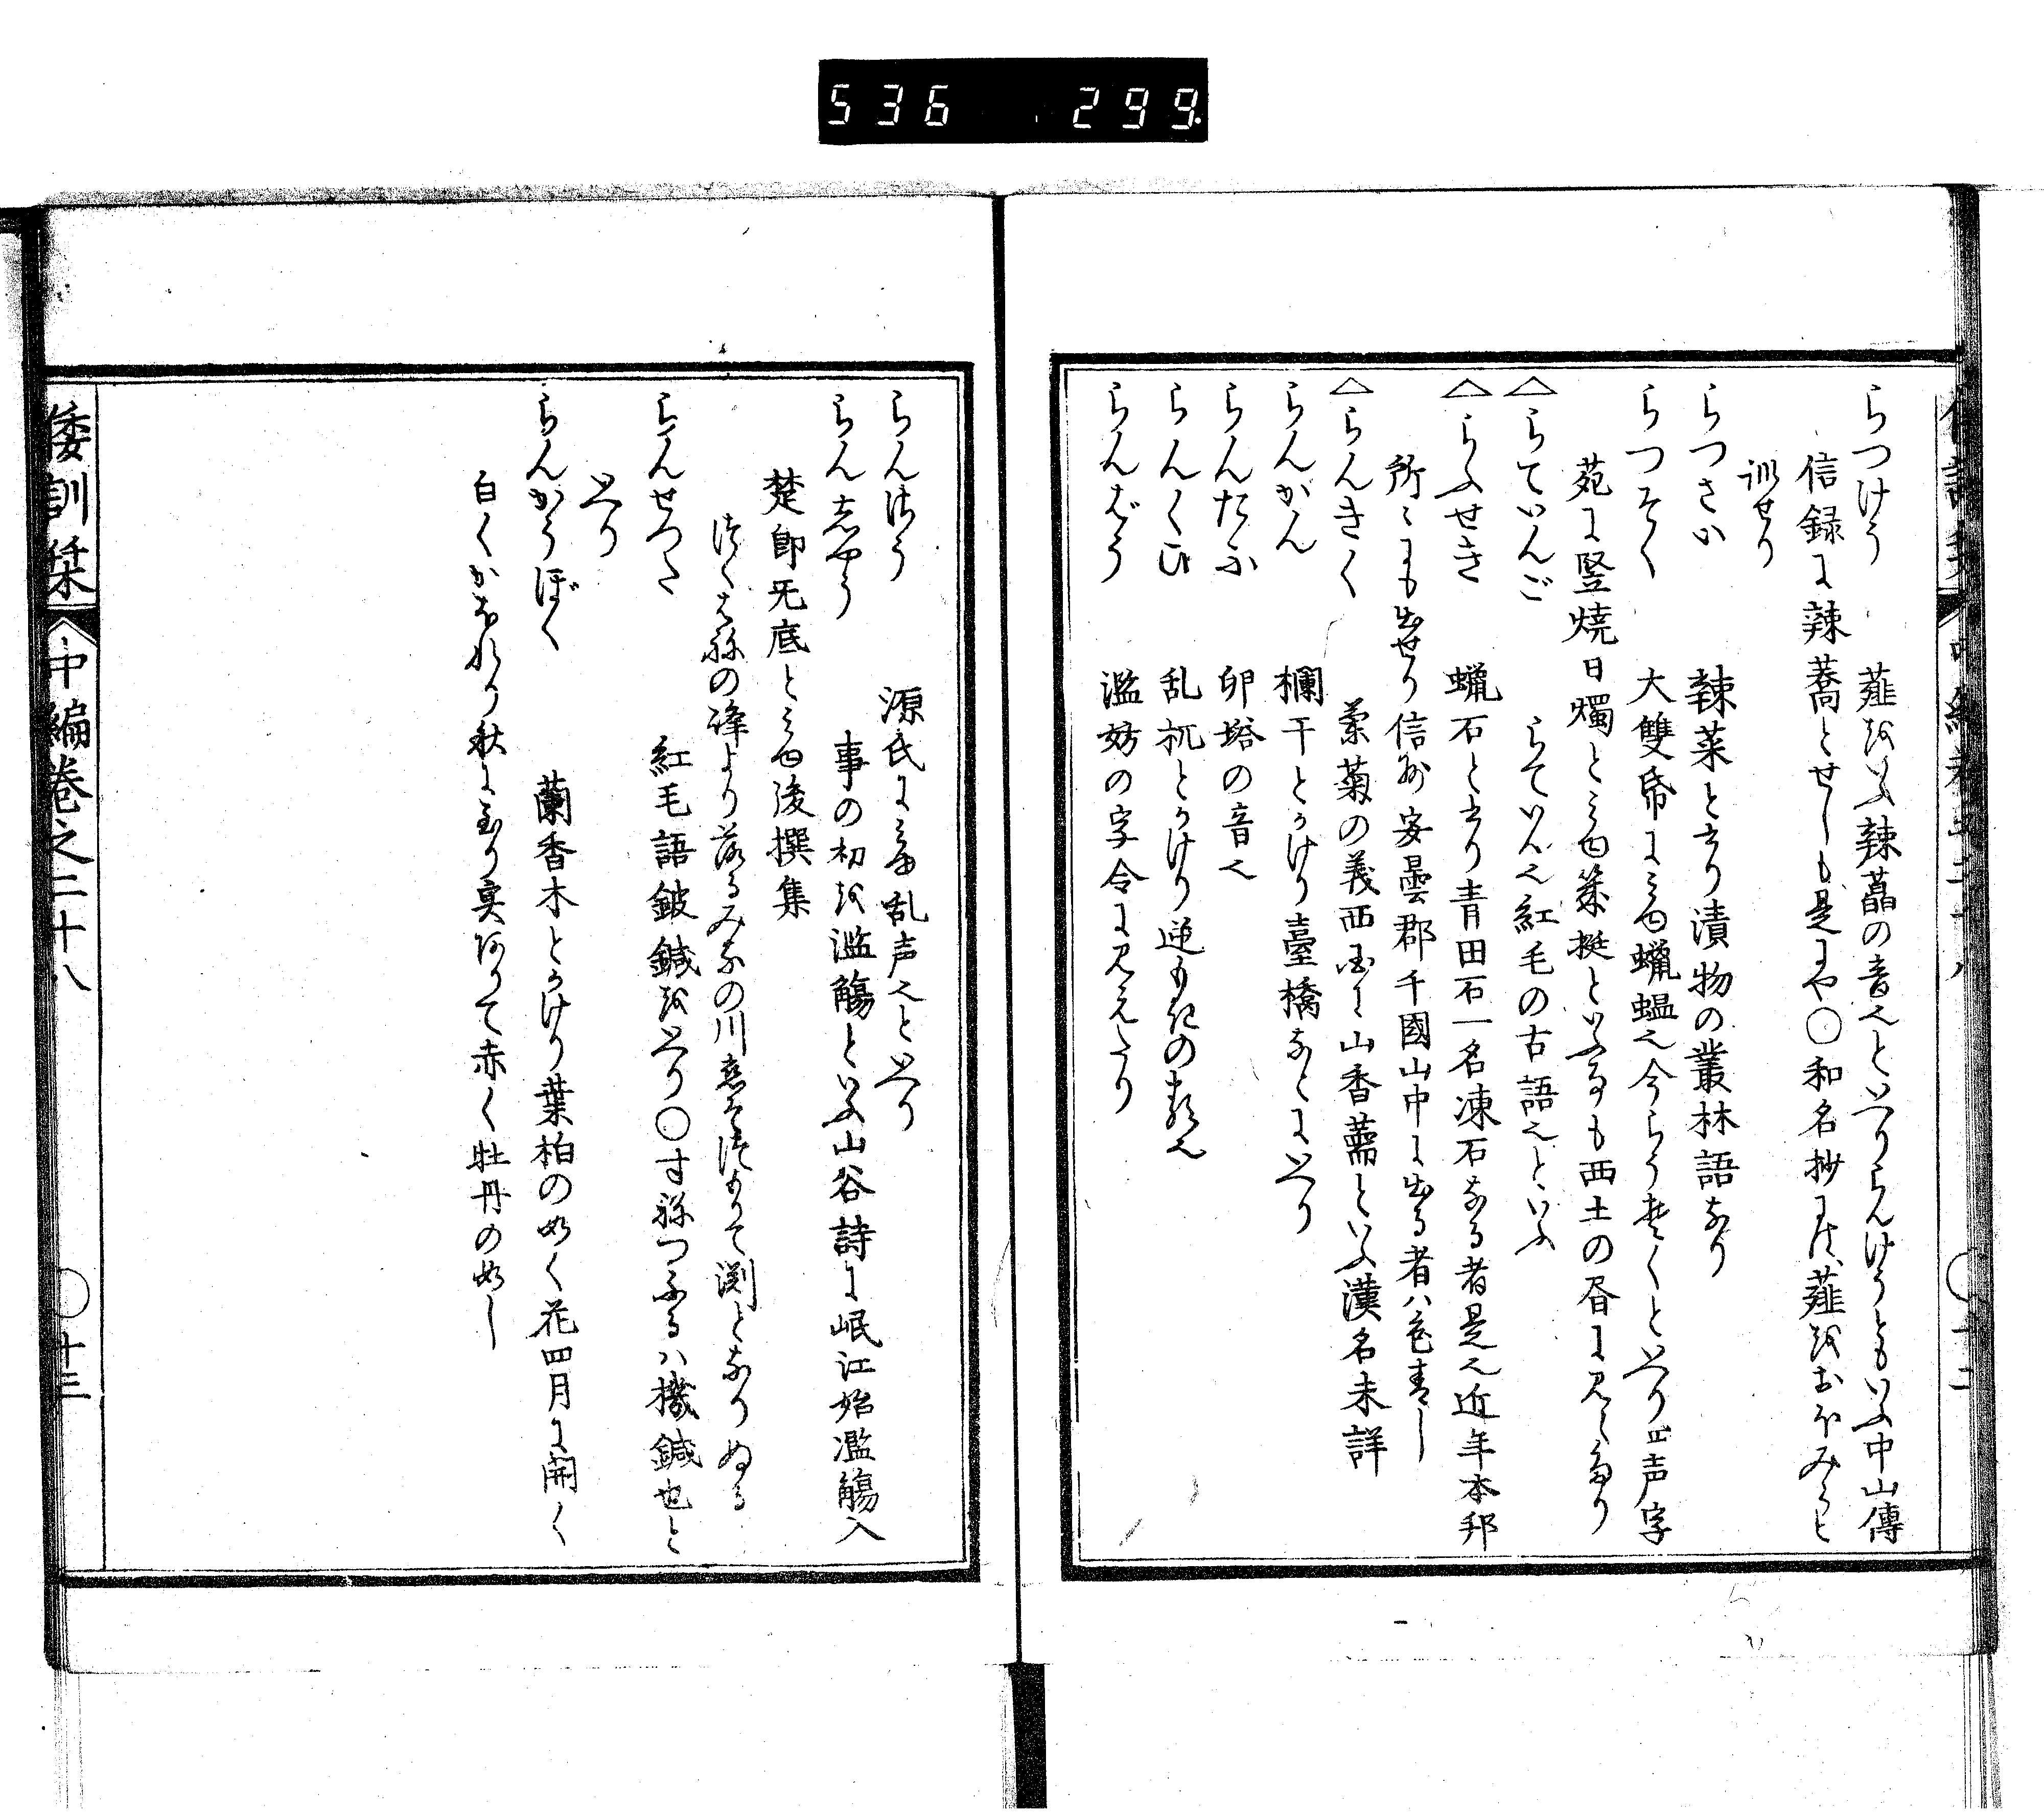 536 299
らつけう 薤をいふ辣韮の音也といへりらんけうともいふ中山傳
信録に辣蕎とせしも是にや〇和名抄には薤をおほみらと
訓せり
らつさい 辣菜と書り漬物の叢林語なり
らつそく 大雙帋にみゆ蝋蝹也今らうそくといへり正声字
苑に竪焼日燭とみゆ幾挺といふ事も西土の昏に見えたり
△らていんご らていん也紅毛の古語也といふ
△らふせき 蝋石と書り青田石一名凍石なる者是也近年本邦
所々にも出せり信州安曇郡千國山中に出る者ハ色青し
△らんきく 蘭菊の義西国に山香薷といふ漢名未詳
らんがん 欄干とかけり臺橋なとにいへり
らんたふ 卵塔の音也
らんくひ 乱杭とかけり逆もきの類也
らんばう 濫妨の字令に見えたり
らんはう 源氏にみゆ乱声也といへり
らんしやう 事の初を濫觴といふ山谷詩に岷江始濫觴入
楚即旡底とみゆ後撰集
つくはねの峰より落るみなの川恋そつもりて渕となりぬる
らんせつた 紅毛語鈹鍼をいへり〇すねつふるハ機鍼也と
いへり
らんかうぼく 蘭香木とかけり葉柏の如く花四月に開く
白くかをれり秋に至り実ありて赤く牡丹の如し
倭訓栞 中編巻之二十八 〇十三